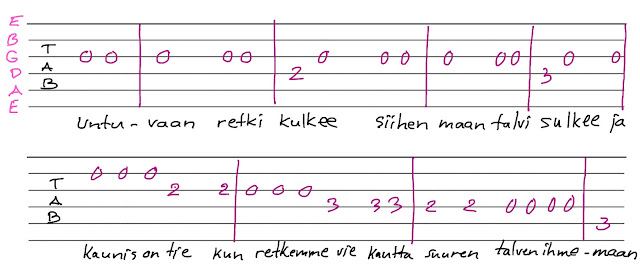 E
B
T
G 0 0 0 0 0 0 0 0 0 0 0 0 0
A
D 2 3
B
A
E
Untu - vaan retki kulkee siihen maan talvi sulkee ja
0 0 0
T 2 2 0 0 0
A 3 3 3 2 2 0 0 0 0
B 3
kaunis on tie kun retkemme vie kautta suuren talven ihme - maan